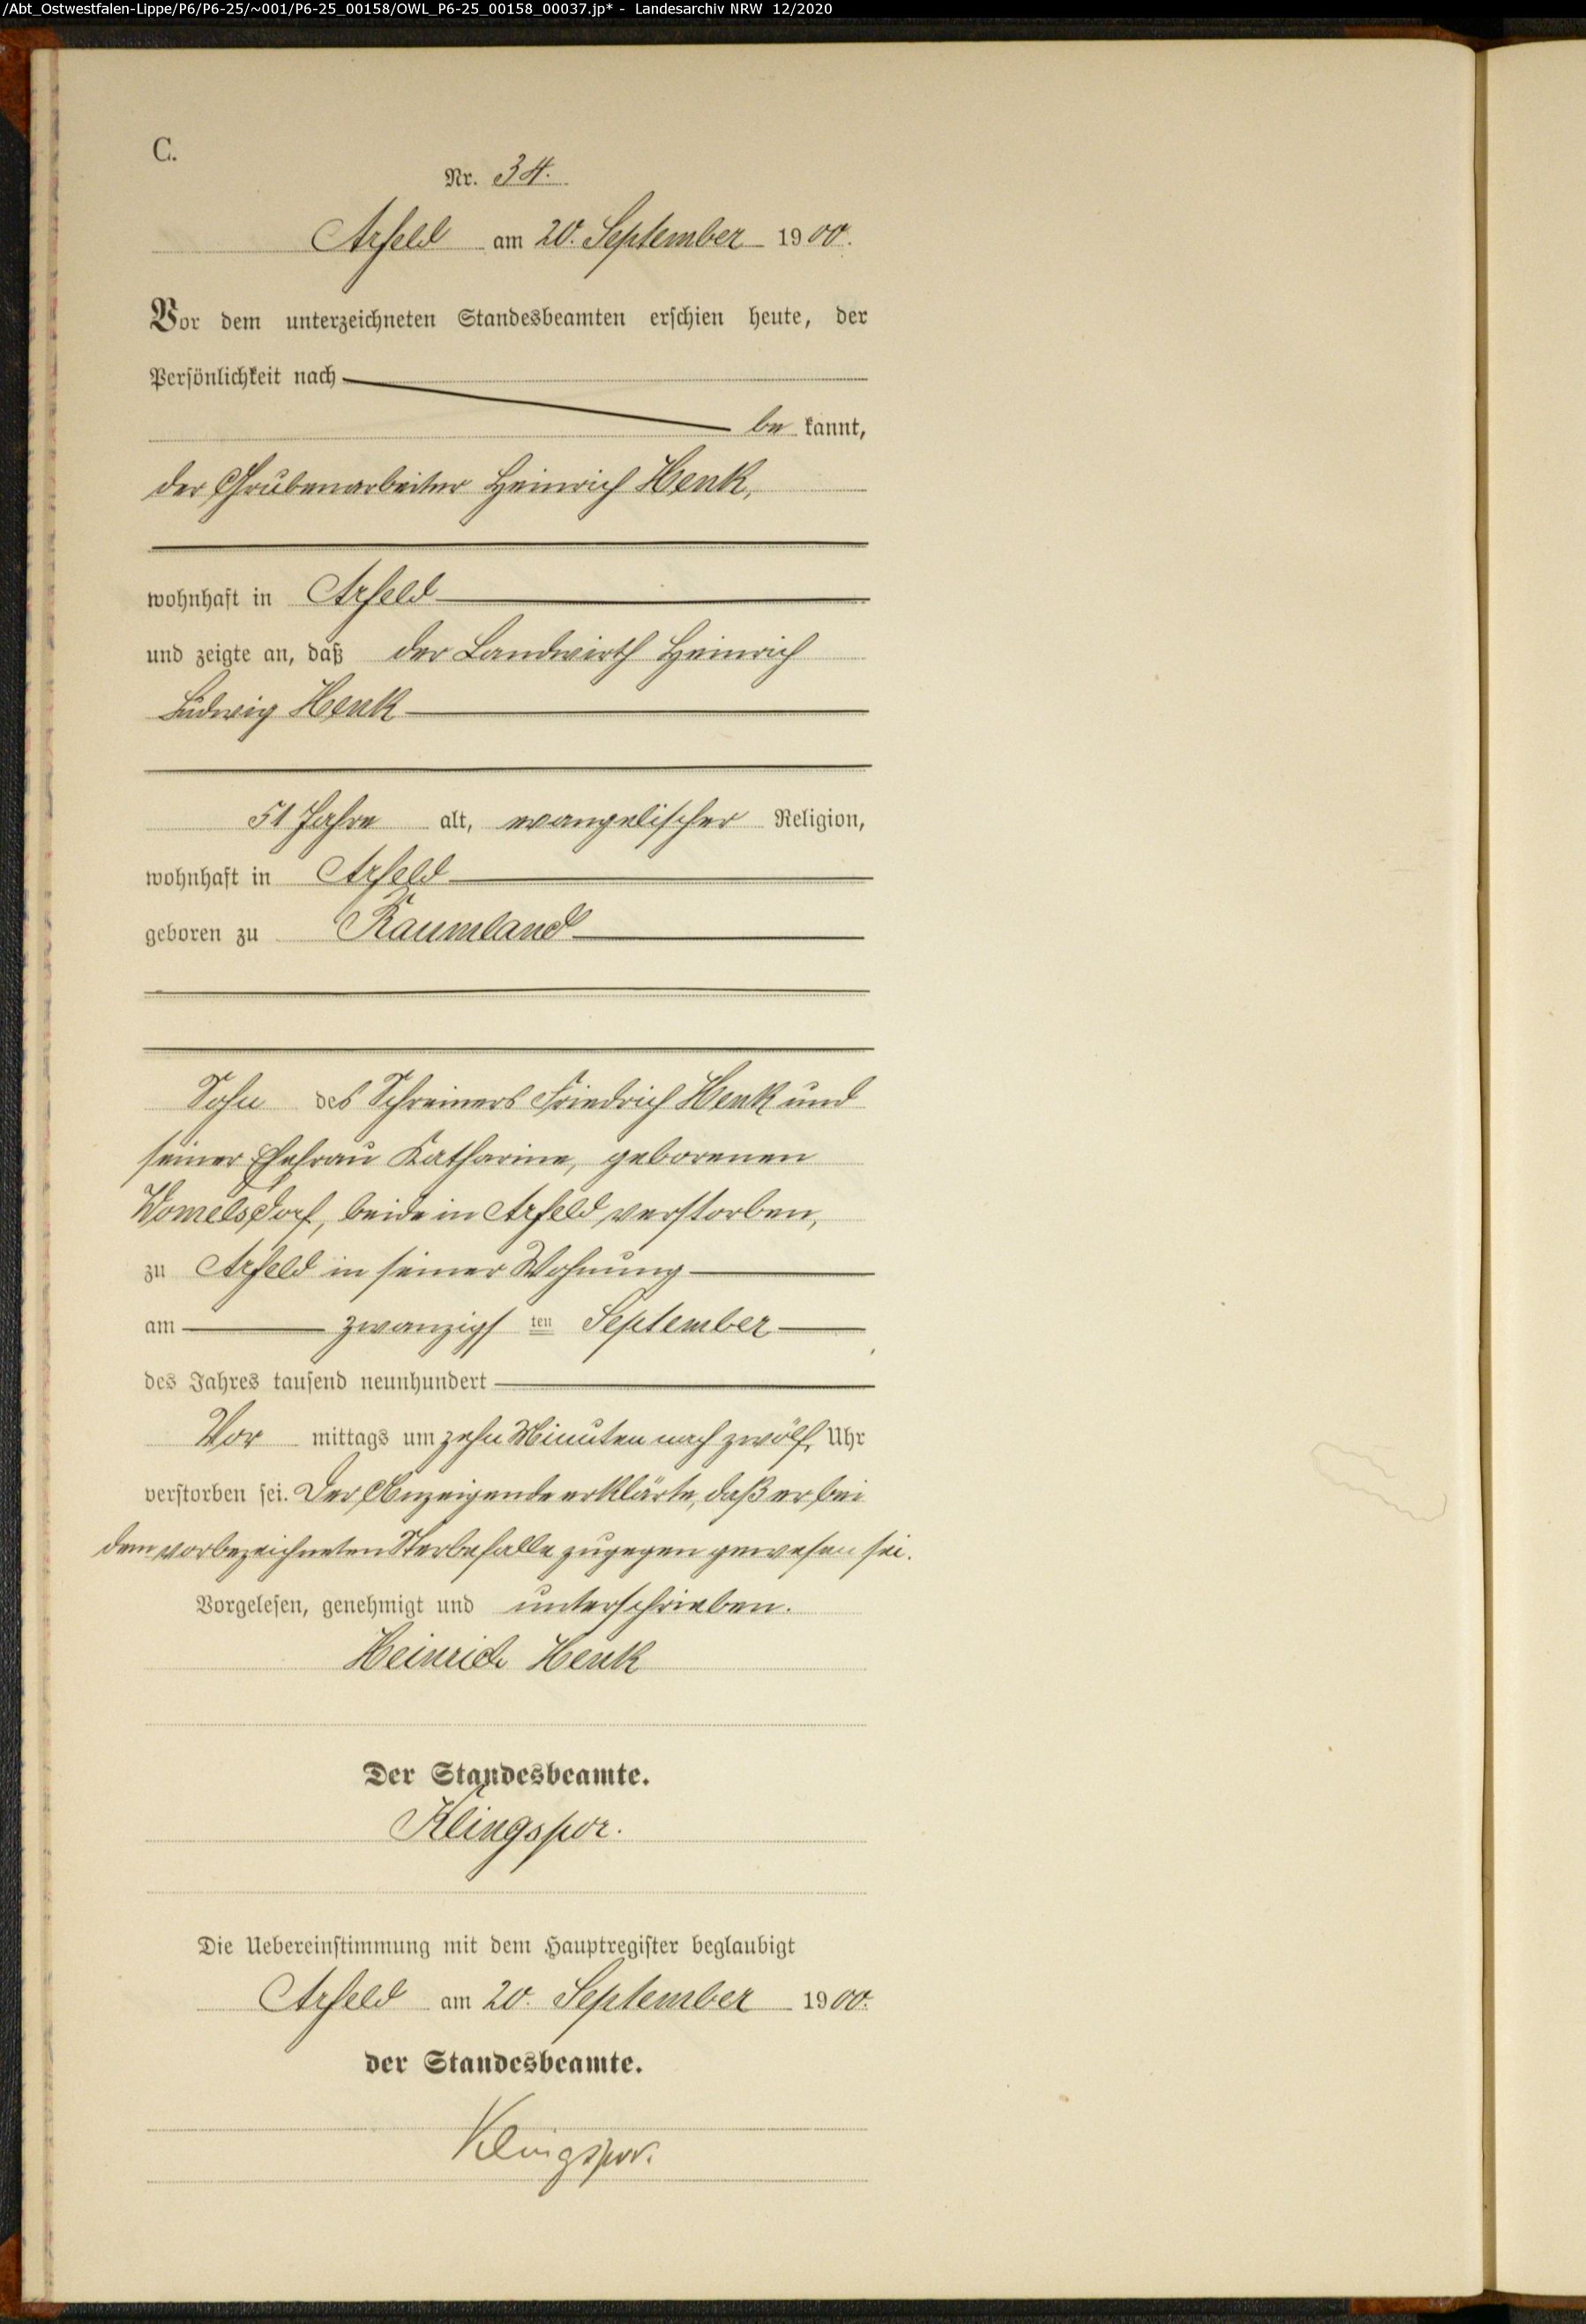 /Abt_Ostwestfalen-Lippe/P6/P6-25/~001/P6-25_00158/OWL_P6-25_00158_00037.jp* - Landesarchiv NRW 12/2020
C.
Nr. 34.
Arfeld am 20. September 1900.
Vor dem unterzeichneten Standesbeamten erschien heute, der
Persönlichkeit nach
be kannt,
der Grubenarbeiter Heinrich Henk,
wohnhaft in Arfeld
und zeigte an, daß der Landwirth Heinrich
Ludwig Henk
51 Jahre alt, evangelischer Religion,
wohnhaft in Arfeld
geboren zu Raumland
Sohn des Schreiners Friedrich Henk und
seiner Ehefrau Katharine, geborenen
Womelsdorf, beide in Arfeld verstorben,
zu Arfeld in seiner Wohnung
am zwanzigs ten September
des Jahres tausend neunhundert
Vor mittags um zehn Minuten nach zwölf Uhr
verstorben sei. Der Anzeigende erklärte, daß er bei
dem vorbezeichneten Sterbefalle zugegen gewesen sei.
Vorgelesen, genehmigt und unterschrieben.
Heinrich Henk
Der Standesbeamte.
Klingspor.
Die Uebereinstimmung mit dem Hauptregister beglaubigt
Arfeld am 20. September 1900.
der Standesbeamte.
Klingspor.